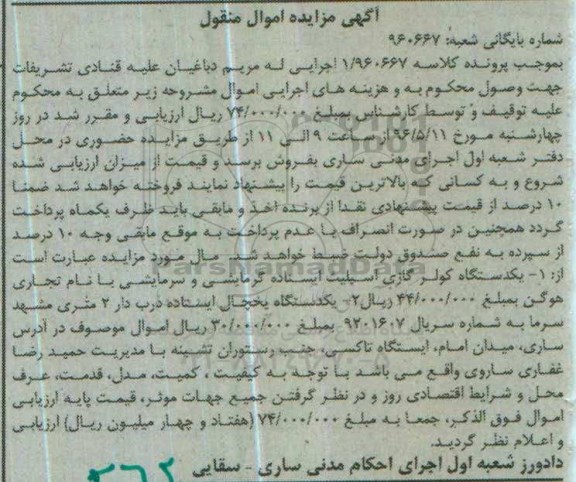 آگهی مزایده اموال منقول
شماره بایگانی شعبه: ۹۶۰۶۶۷
بموجب پرونده کلاسه ۱/۹۶۰۶۶۷ اجرایی له مریم دباغیان علیه قنادی تشریفات
جهت وصول محکوم به و هزینه های اجرایی اموال مشروحه زیر متعلق به محکوم
علیه توقیف و توسط کارشناس بمبلغ ۷۴/۰۰۰/۰۰۰ ریال ارزیابی و مقرر شد در روز
چهارشنبه مورخ ۹۶/۵/۱۱ از ساعت ۹ الی ۱۱ از طریق مزایده حضوری در محل
دفتر شعبه اول اجرای مدنی ساری بفروش برسد و قیمت از میزان ارزیابی شده
شروع و به کسانی که بالاترین قیمت را پیشنهاد نمایند فروخته خواهد شد ضمنا
۱۰ درصد از قیمت پیشنهادی نقدا از برنده اخذ و مابقی باید ظرف یکماه پرداخت
گردد همچنین در صورت انصراف یا عدم پرداخت به موقع مابقی وجه ۱۰ درصد
از سپرده به نفع صندوق دولت ضبط خواهد شد. مال مورد مزایده عبارت است
از: ۱- یکدستگاه کولر گازی اسپلیت ایستاده گرمایشی و سرمایشی با نام تجاری
هوگن بمبلغ ۴۴/۰۰۰/۰۰۰ ریال ۲- یکدستگاه یخچال ایستاده درب دار ۲ متری مشهد
سرما به شماره سریال ۹۲۰۱۶۰۷ بمبلغ ۳۰/۰۰۰/۰۰۰ ریال اموال موصوف در آدرس
ساری، میدان امام، ایستگاه تاکسی، جنب رستوران تشبینه با مدیریت حمید رضا
غفاری ساروی واقع می باشد با توجه به کیفیت، کمیت، مدل، قدمت، عرف
محل و شرایط اقتصادی روز و در نظر گرفتن جمیع جهات موثر، قیمت پایه ارزیابی
اموال فوق الذکر، جمعا به مبلغ ۷۴/۰۰۰/۰۰۰ (هفتاد و چهار میلیون ریال) ارزیابی
و اعلام نظر گردید.
دادورز شعبه اول اجرای احکام مدنی ساری - سقایی
ParsNamadData